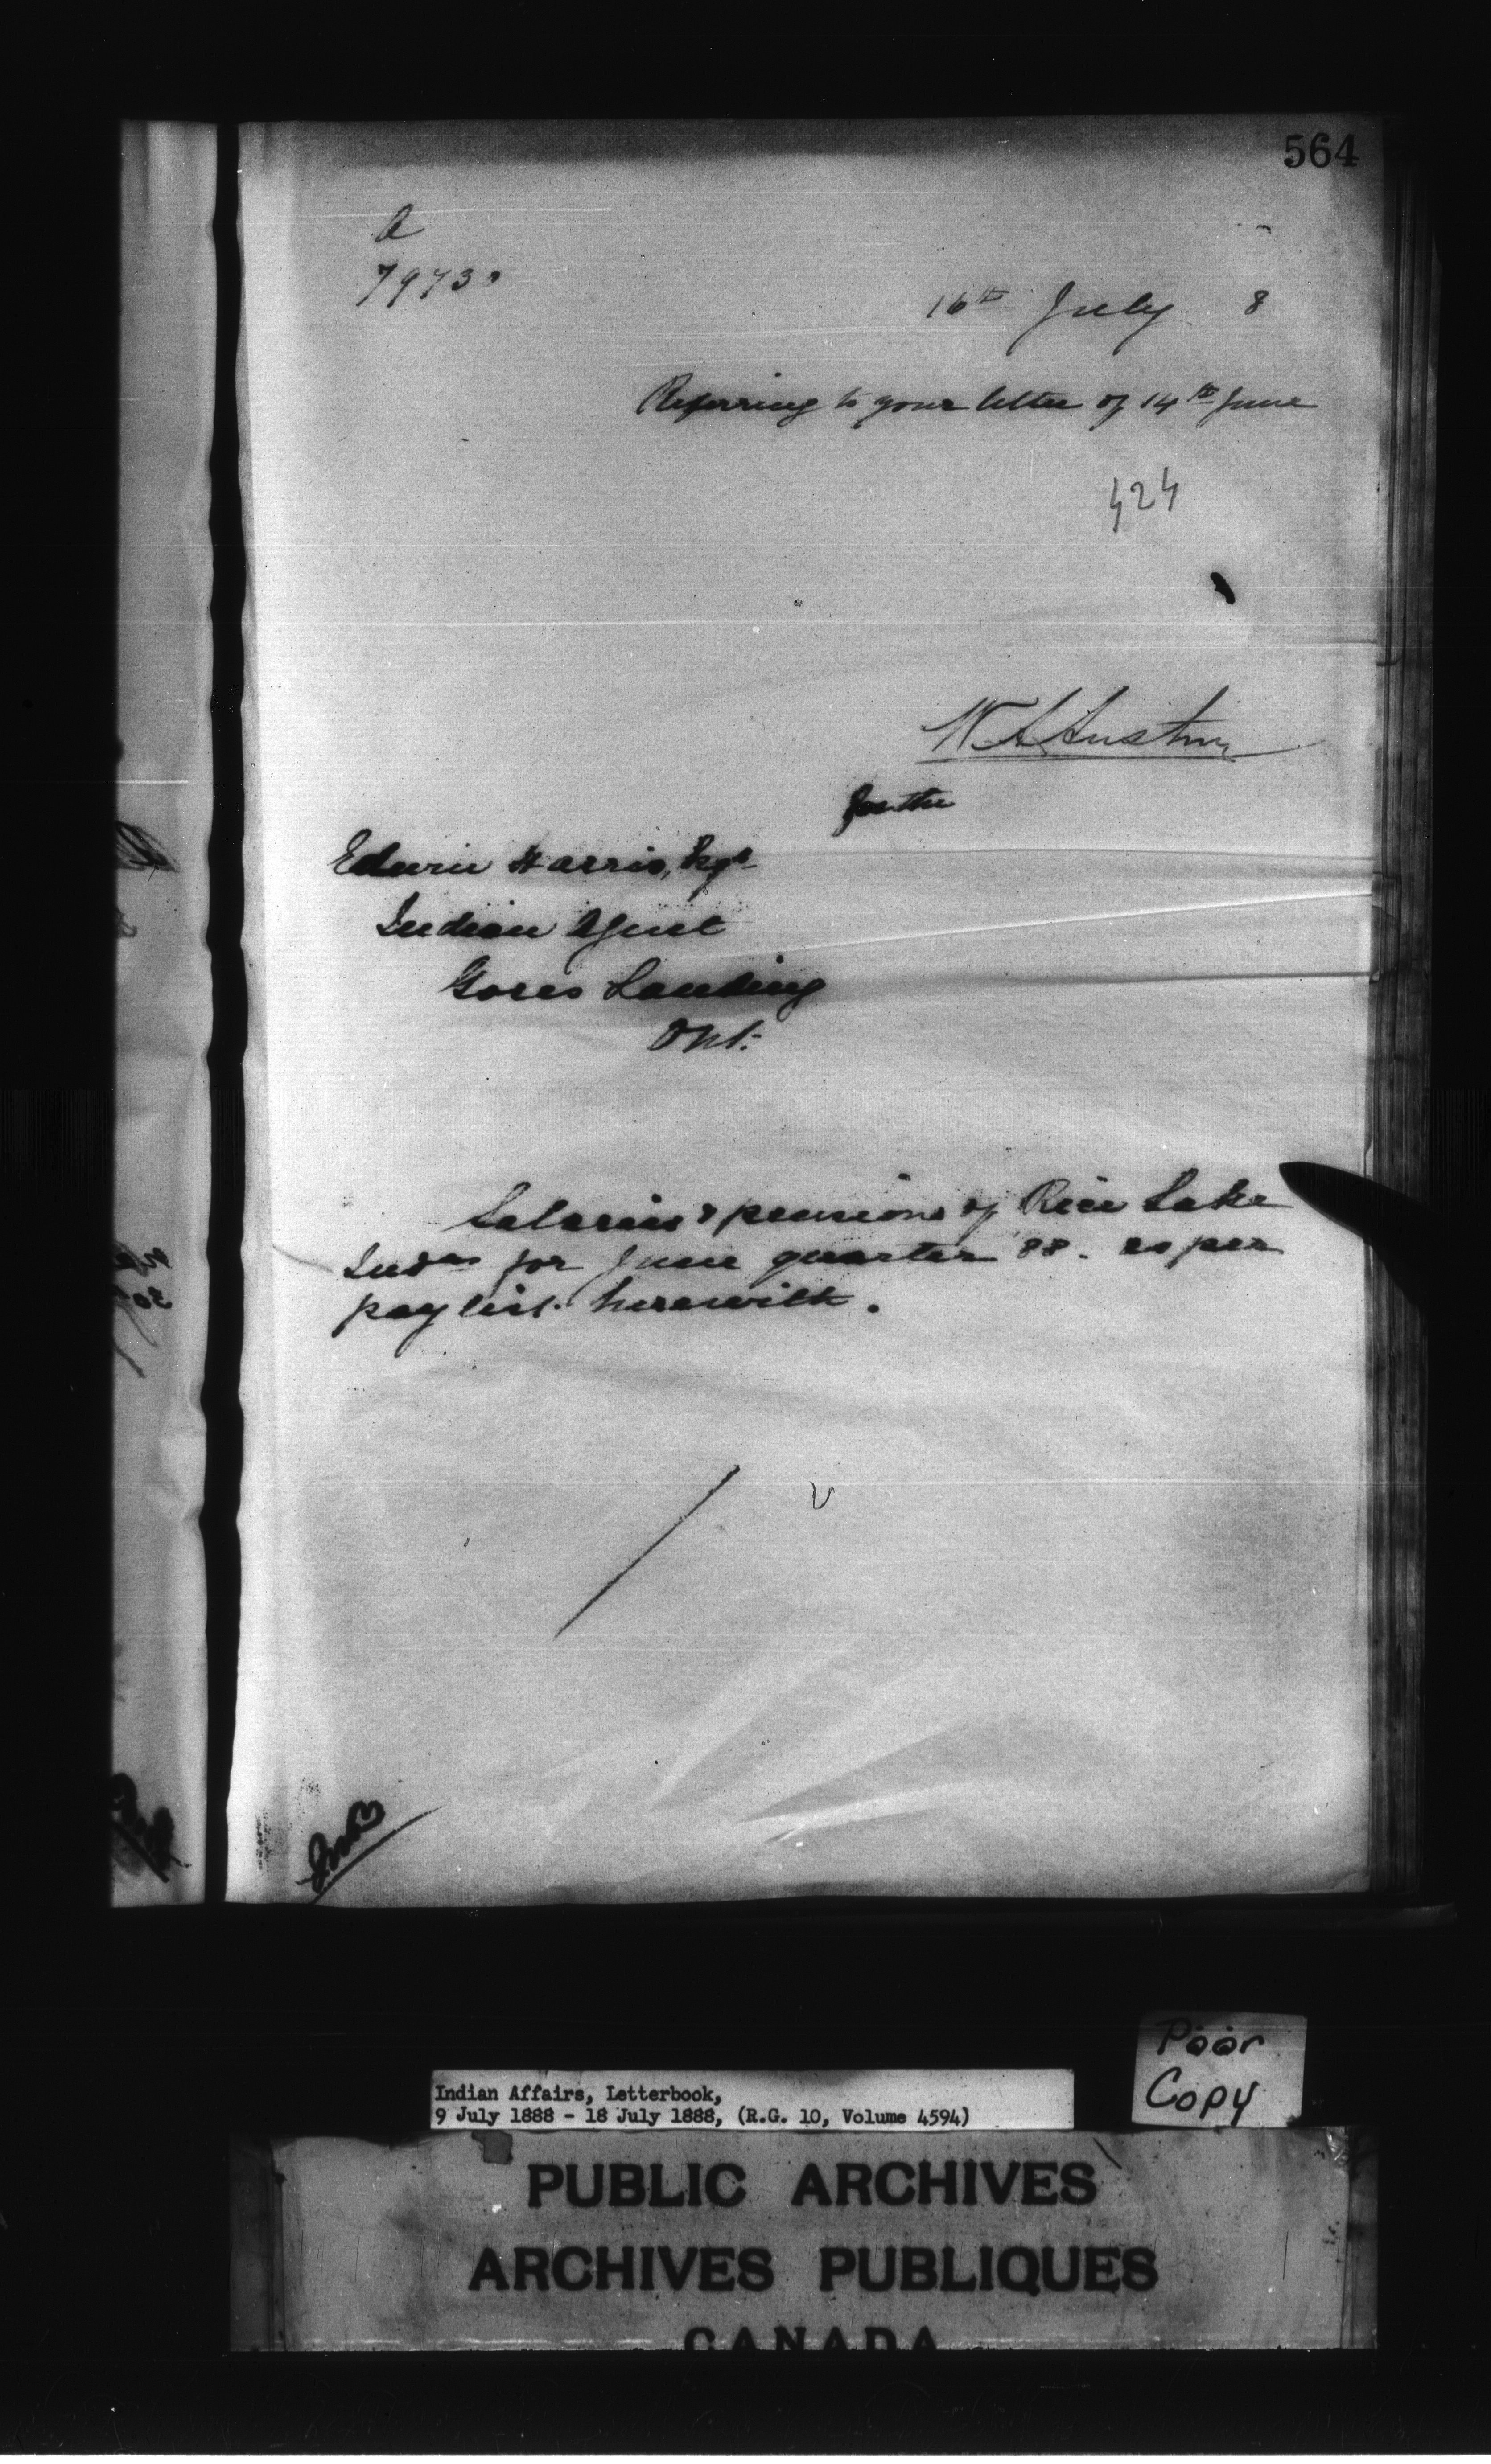 564
A
7973.
16th July 8
Referring to your letter of 14th June
424
W A Austin
for the
Edwin Harris, Esqr
Indian Agent
Gores Landing
Ont.
Salaries & pensions of Rice Lake
Indns for June quarter 88. as per
paylist herewith.
Poor
Copy
Indian Affairs, Letterbook,
9 July 1888 - 18 July 1888, (R.G. 10, Volume 4594)
PUBLIC ARCHIVES
ARCHIVES PUBLIQUES
CANADA